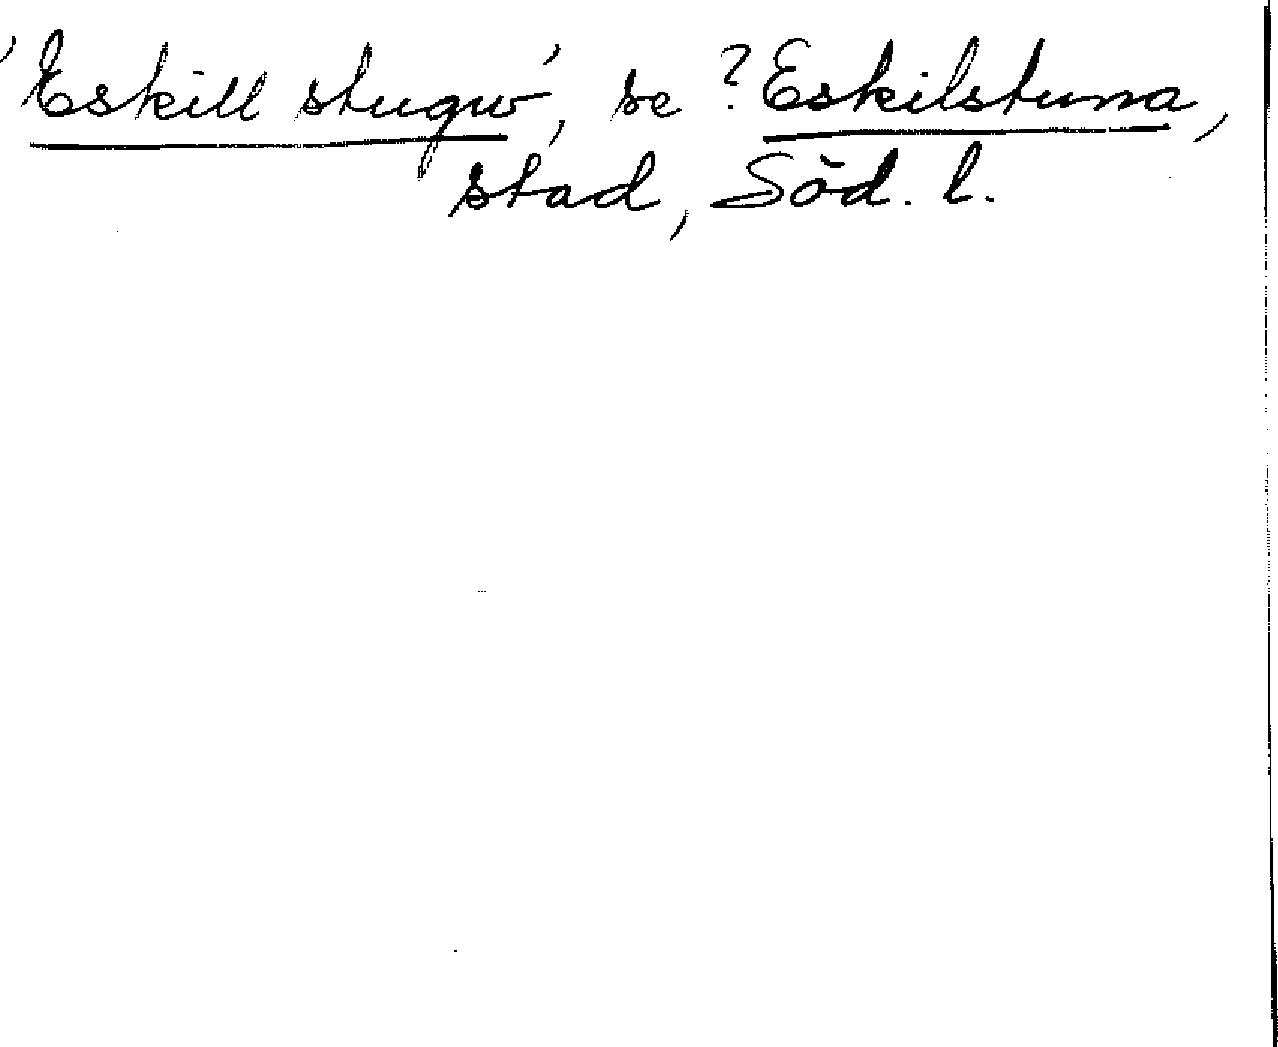 'Eskill stugw', se ? Eskilstuna,
stad, Söd. l.